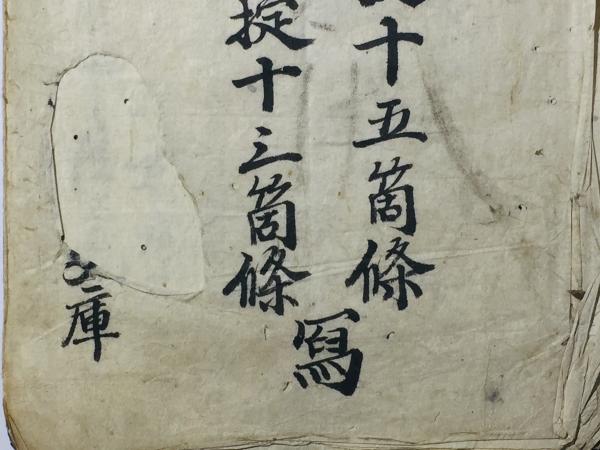 十五箇條
掟十三箇條
寫
庫